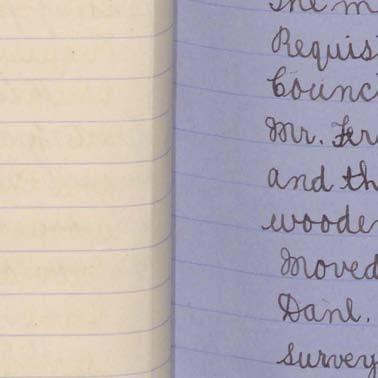 The m
Requis
Counc
Mr. Fer
and th
woode
Moved
Danl.
survey